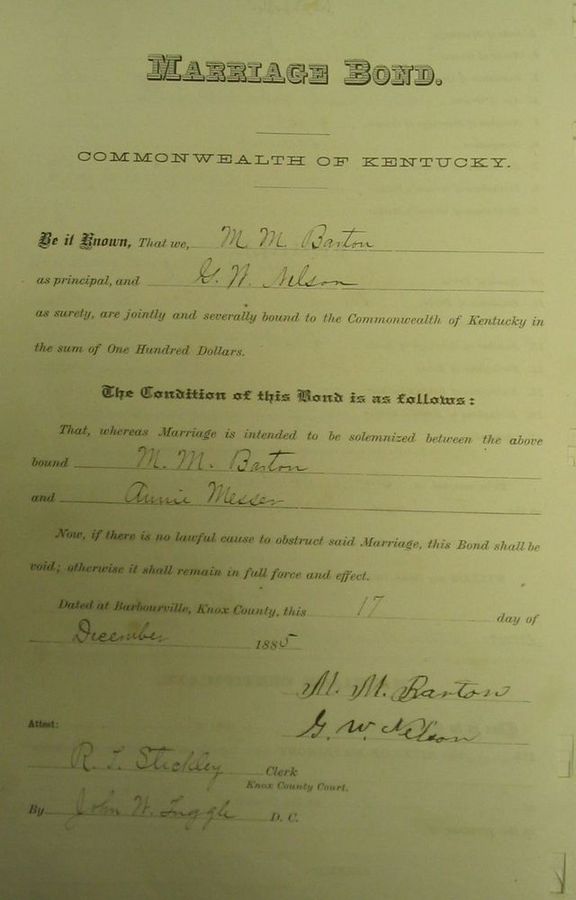 MARRIAGE BOND.
COMMONWEALTH OF KENTUCKY.
Be it Known, That we, M. M. Barton
as principal, and G. W. Nelson
as surety, are jointly and severally bound to the Commonwealth of Kentucky in
the sum of One Hundred Dollars.
The Condition of this Bond is as follows:
That, whereas Marriage is intended to be solemnized between the above
bound M. M. Barton
and Annie Messer
Now, if there is no lawful cause to obstruct said Marriage, this Bond shall be
void; otherwise it shall remain in full force and effect.
Dated at Barbourville, Knox County, this 17 day of
December 1885
M. M. Barton
G. W. Nelson
Attest:
R. T. Stickley Clerk
Knox County Court.
By John W. Tuggle D. C.